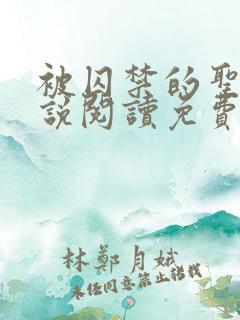 被囚禁的聖
說閱讀免費
林鄭月娥
未经同意禁止转载